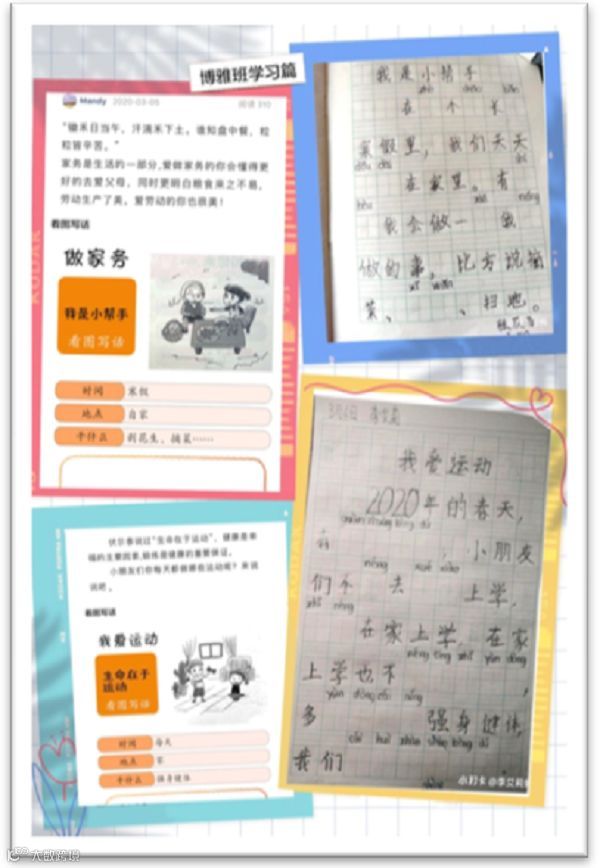 博雅班学习篇
Mandy 2020-03-05 阅读 310
“锄禾日当午，汗滴禾下土，谁知盘中餐，粒
粒皆辛苦。”
家务是生活的一部分,爱做家务的你会懂得更
好的去爱父母，同时更明白粮食来之不易，
劳动生产了美，爱劳动的你也很美！
看图写话
做家务
我是小帮手
看图写话
时间 寒假
地点 自家
干什么 剥花生、摘菜……
我是小帮手
在 个 长
寒假里，我们天天
在家里。有
我会做一 我
做的事，比方说摘
菜、 、扫地。
伏尔泰说过“生命在于运动”，健康是幸
福的主要因素,锻炼是健康的重要保证。
小朋友们你每天都做哪些运动呢？来说
说吧。
看图写话
我爱运动
生命在于
运动
看图写话
时间 每天
地点 家
干什么 强身健体
3月6日
我爱运动
2020年的春天，
有 ，小朋友
们不 去 上学，
在家上学，在家
上学也不 ，
多 强身健体，
我们
小打卡
大数跨境